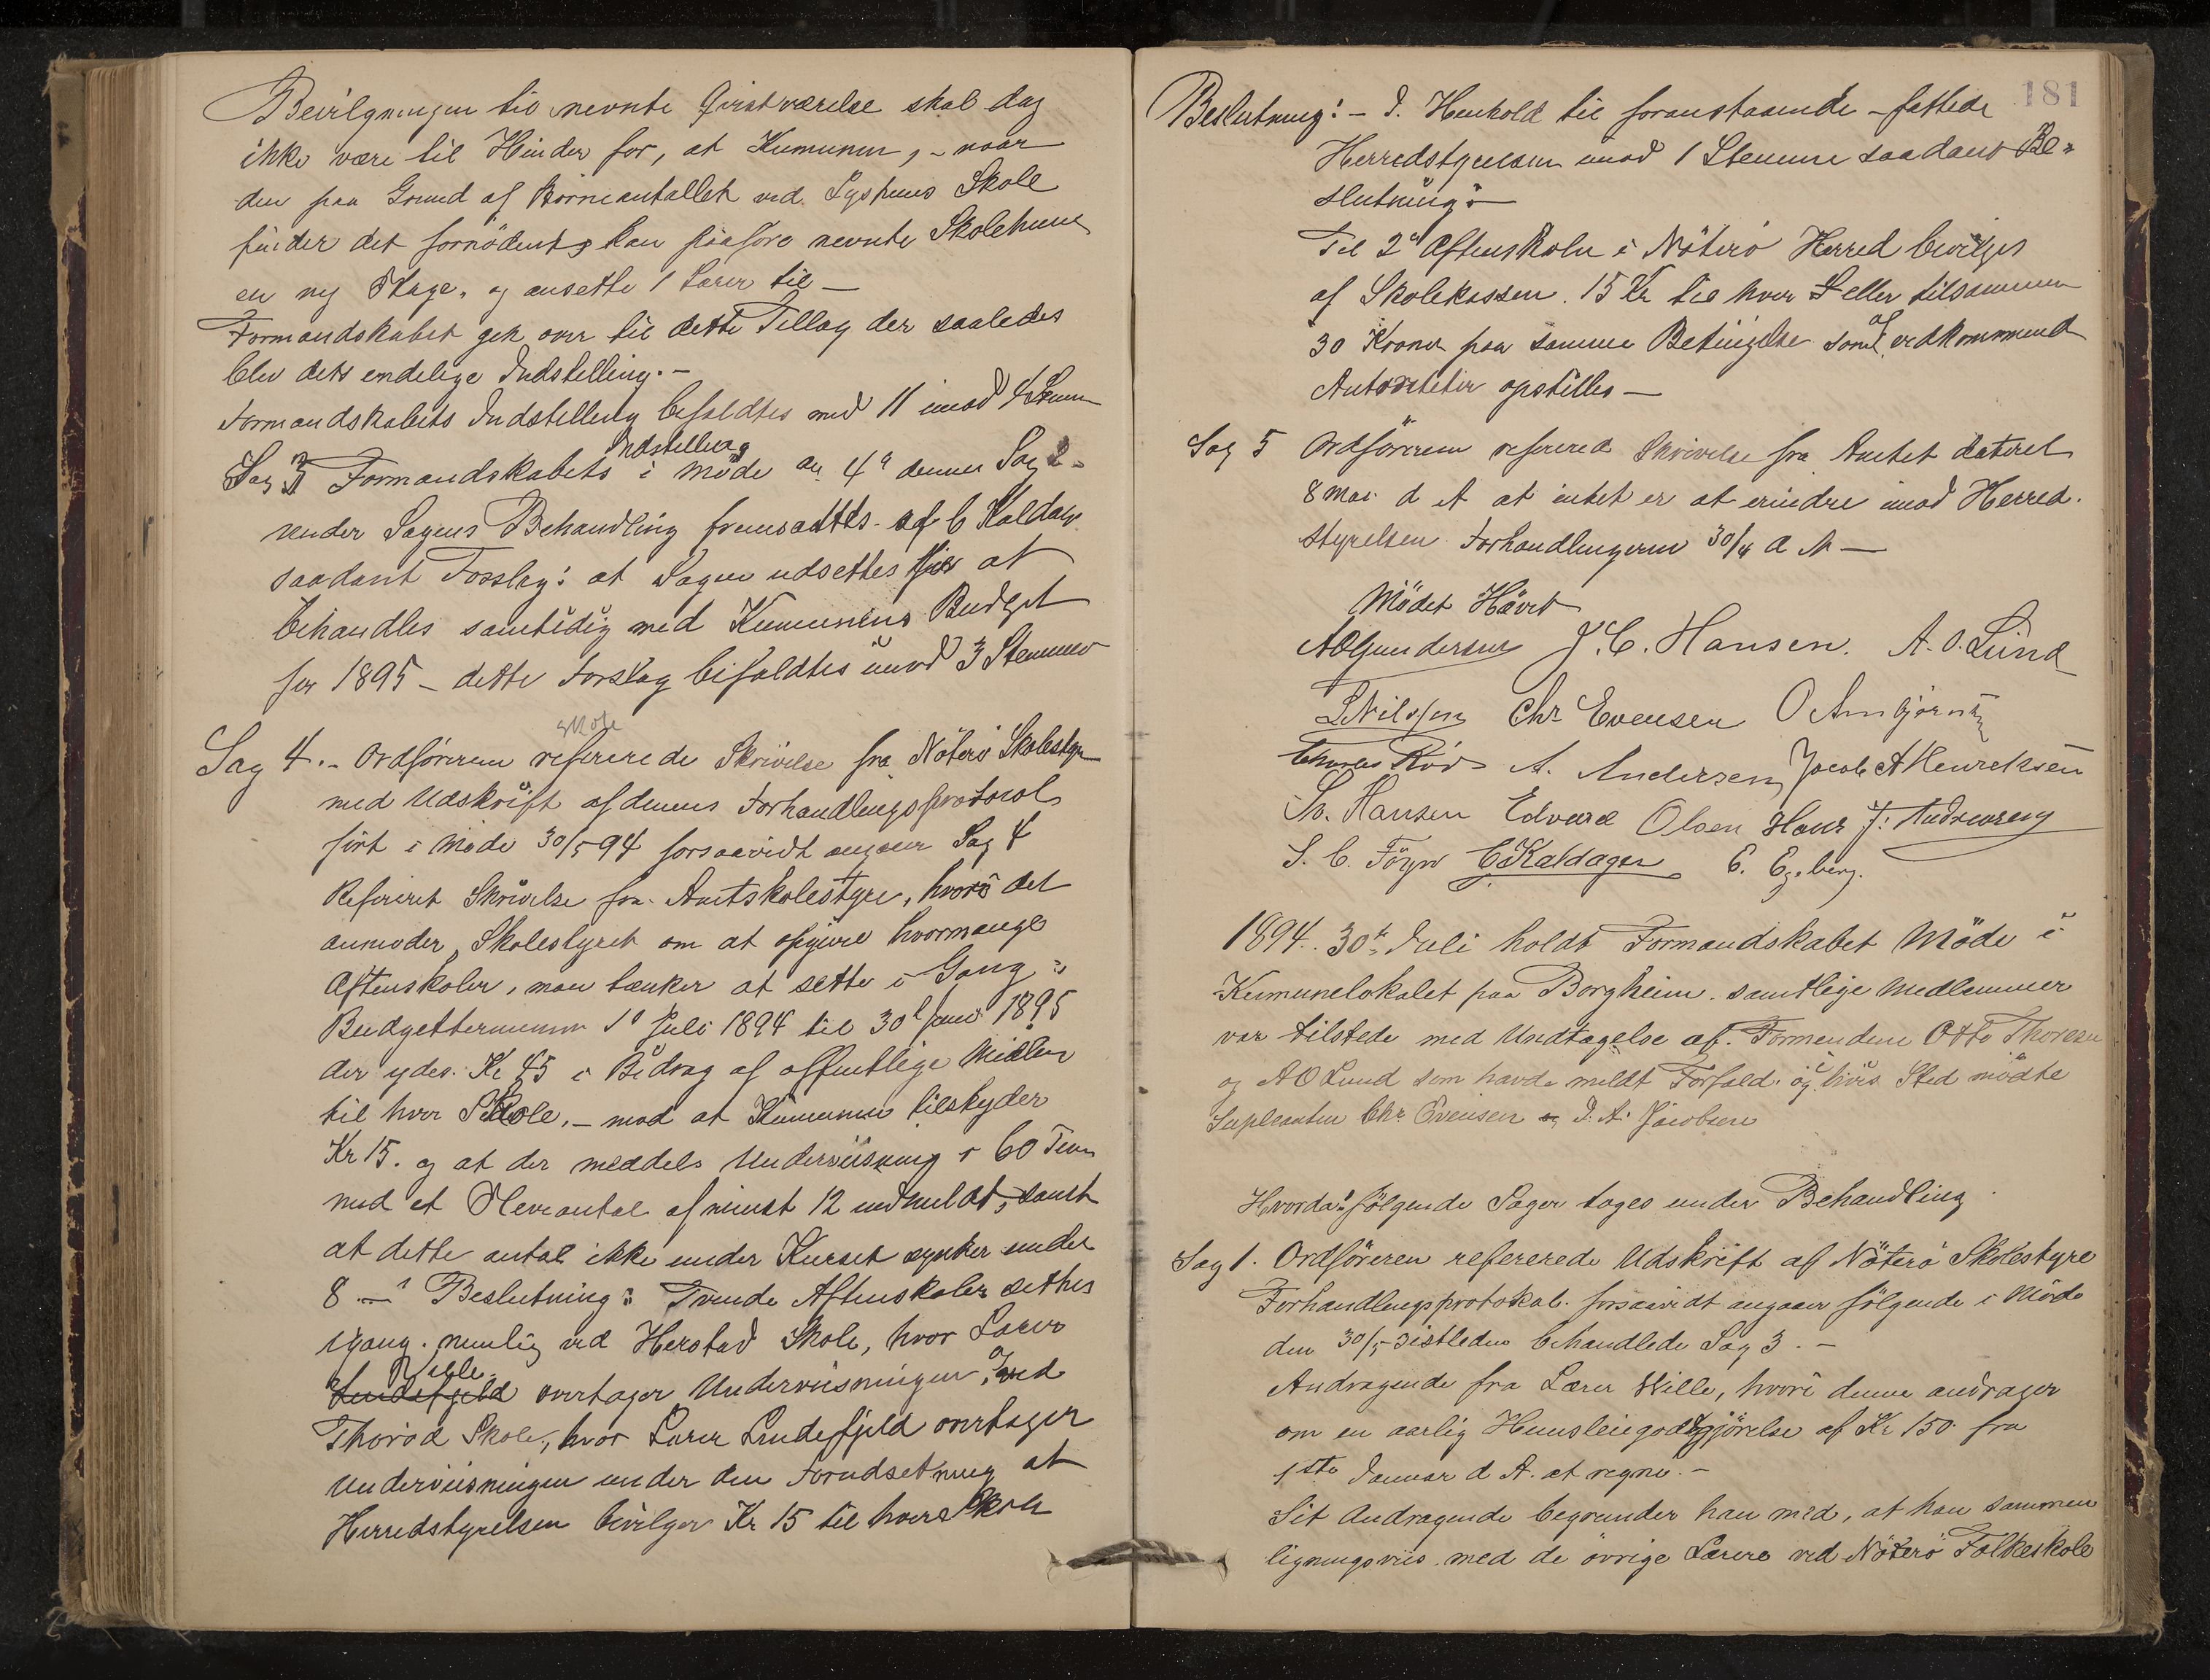 Bevilgningen til nevnte Qvistværelse skal dog
ikke være til Hinder for, at Kumunen, - naar
den paa Grund af Börneantallet ved Lyshuus Skole
finder det fornödent, kan paaføre nevnte Skolehuus
en ny Etage, og ansette 1 Lærer til —
Formandskabet gik over til dette Tillæg der saaledes
blev dets endelige Indstilling. -
Formandskabets Indstilling bifaldtes med 11 imod 4 Stemm
Sag 3 Formandskabets Indstilling i möde den 4de dennes Sag 2 -
under Sagens Behandling fremsattes af C Kaldager
saadant Forslag: at Sagen udsettes for at
behandles samtidig med Kumunens Budget
for 1895 - dette Forslag bifaldtes imod 3 Stemmer
Skole
Sag 4. - Ordföreren refererede Skrivelse fra Nöterö Skolestyre
med Udskrift af dennes Forhandlingsprotocol
fört i Möde 30/5 94 forsaavidt angaaer Sag 4
Refereret Skrivelse fra Amtskolestyre, hvori det
anmoder Skolestyret om at opgive hvormange
Aftenskoler, man tænker at sette i Gang i
Budgetterminen 1ste Juli 1894 til 30te Juni 1895
der ydes Kr 45 i Bidrag af offentlige Midler
til hver Skole, - mod at Kumunen tilskyder
Kr 15. og at der meddeles Underviisning i 60 Timer
med et Elevantal af minst 12 indmeldt, samt
at dette antal ikke under Kurset synker under
8 — Beslutning: Tvende Aftenskoler settes
igang. nemlig ved Herstad Skole, hvor Lærer
Wille
Lindefjeld overtager Underviisningen, og ved
Thoröd Skole, hvor Lærer Lindefjeld overtager
Underviisningen under den Forudsetning at
Herredstyrelsen bivilger Kr 15 til hver Skole
181
Beslutning: - I Henhold til foranstaaende - fattede
Herredstyrelsen imod 1 Stemme saadan Be-
slutning: —
Til 2de Aftenskoler i Nöterö Herred bevilges
af Skolekassen 15 Kr til hver eller tilsammen
30 Kroner paa samme Betingelse som af vedkommende
Autoriteter opstilles —
Sag 5 Ordföreren refererede Skrivelse fra Amtet dateret
8 Mai d A at intet er at erindre imod Herred-
styrelsen Forhandlingerne 30/4 d A —
Mödet Hævet
A O Gundersen J. C. Hansen. A. O. Lund
L Nilssen Chr Evensen O Arnbjörnsen
Charles Röd A. Andersen Jacob A Henreksen
Chr. Hansen Edvard Olsen Hans J. Andreasen
S. C. Föyn C Kaldager E. Egeberg.
1894. 30te Juli holdt Formandskabet Möde i
Kumunelokalet paa Borgheim. samtlige Medlemmer
var tilstede med Undtagelse af Formendene Otto Thoresen
og A O Lund som havde meldt Forfald, i hvis Sted mödte
Supleanten Chr Evensen og J. A. Jacobsen
Hvorda følgende Sager toges under Behandling
Sag 1. Ordföreren refererede Udskrift af Nöterö Skolestyre
Forhandlingsprotokol. forsaavidt angaaer fölgende i Möde
den 30/5 sistleden behandlede Sag 3. -
Andragende fra Lærer Wille, hvori denne andrager
om en aarlig Huusleiegodtgjörelse af Kr 150 fra
1ste Januar d A. at regne. -
Sit Andragende begrunder han med, at han sammen
ligningsviis med de övrige Lærere ved Nöterö Folkeskole